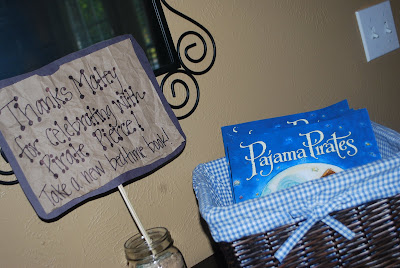 Thanks Matty
for celebrating with
Pirate Pierce!
Take a new bedtime book!
Pajama Pirates